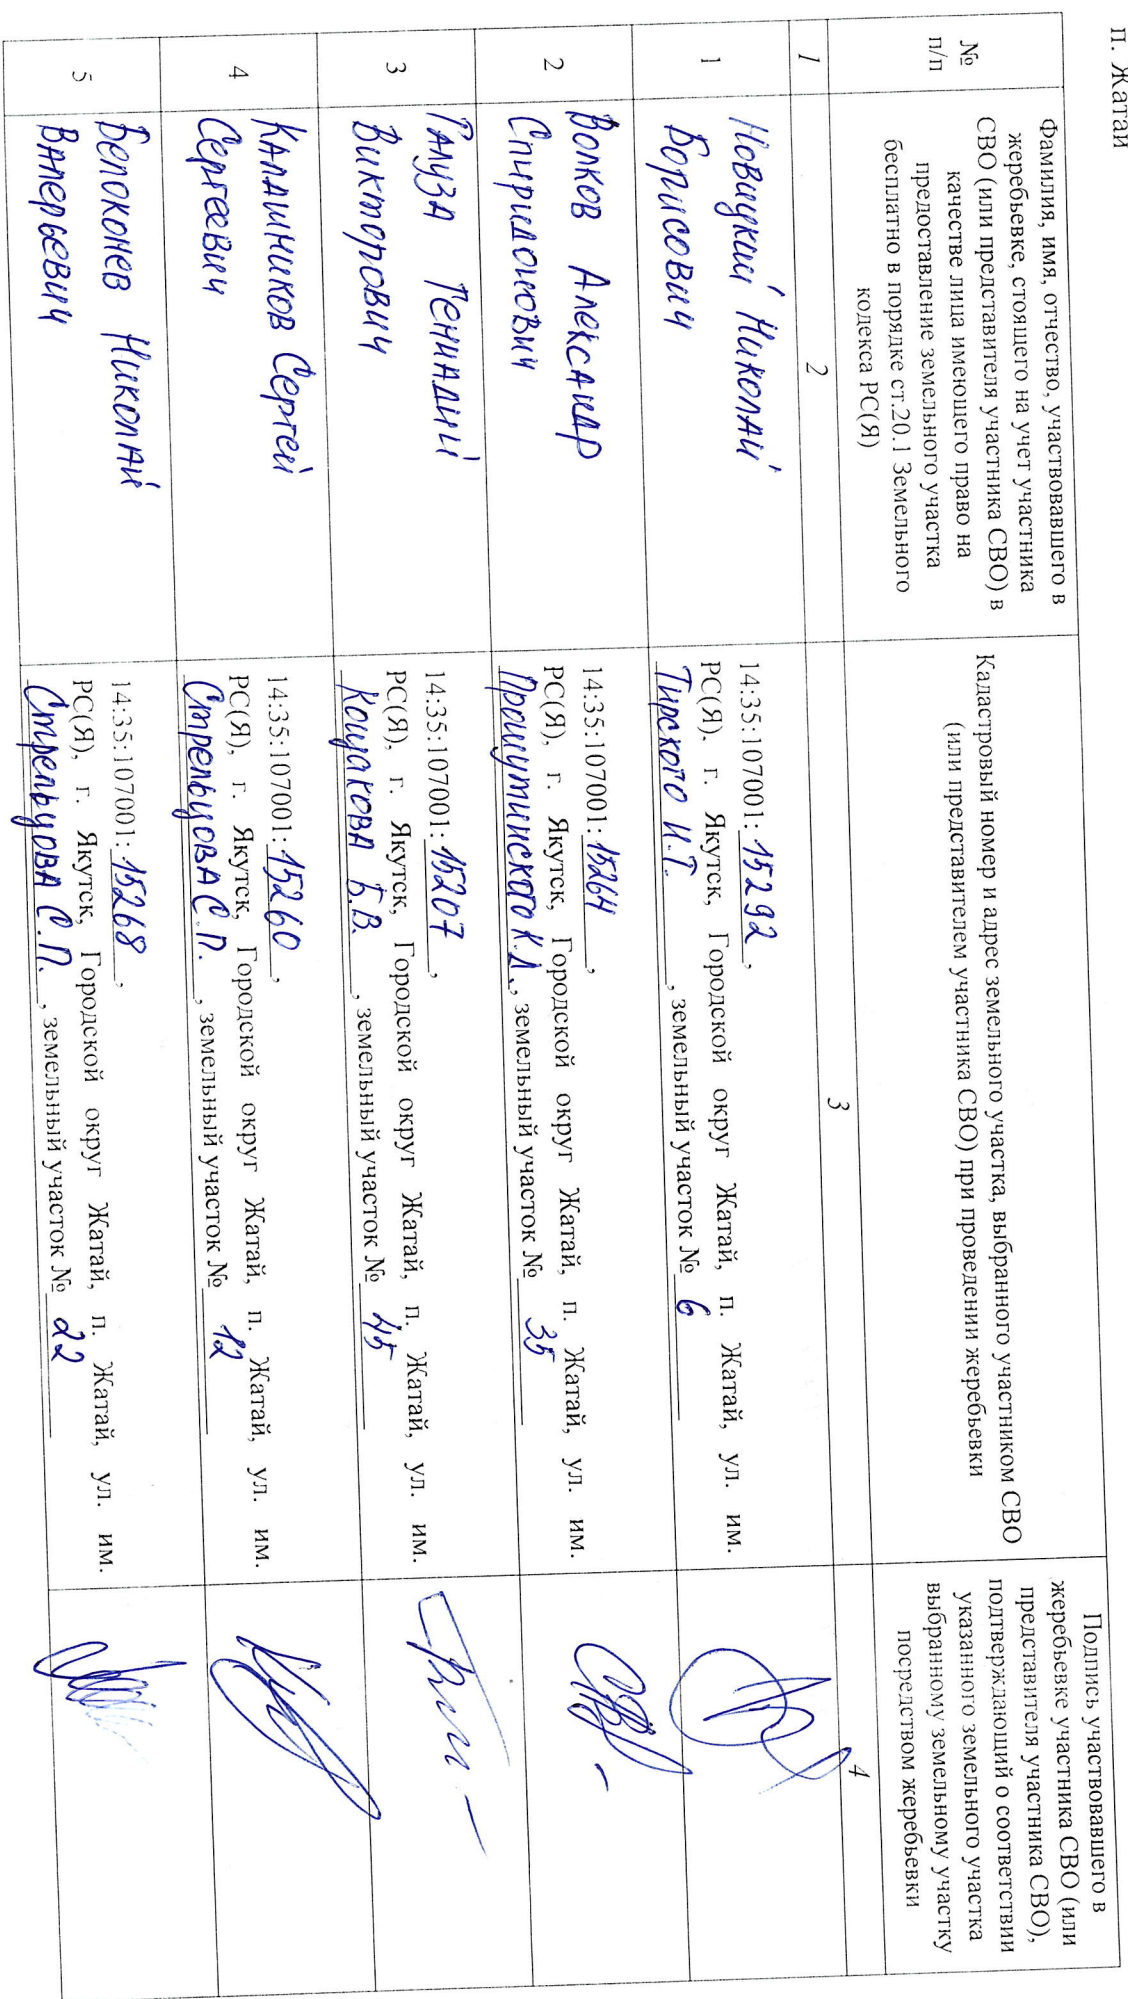 п. Жатай
№
п/п
Фамилия, имя, отчество, участвовавшего в
жеребьевке, стоящего на учет участника
СВО (или представителя участника СВО) в
качестве лица имеющего право на
предоставление земельного участка
бесплатно в порядке ст.20.1 Земельного
кодекса РС(Я)
Кадастровый номер и адрес земельного участка, выбранного участником СВО
(или представителем участника СВО) при проведении жеребьевки
Подпись участвовавшего в
жеребьевке участника СВО (или
представителя участника СВО),
подтверждающий о соответствии
указанного земельного участка
выбранному земельному участку
посредством жеребьевки
1
2
3
4
1
Новицкий Николай
Борисович
14:35:107001:15292,
РС(Я), г. Якутск, Городской округ Жатай, п. Жатай, ул. им.
Тирского И.Т. , земельный участок № 6
2
Волков Александр
Спиридонович
14:35:107001:15264,
РС(Я), г. Якутск, Городской округ Жатай, п. Жатай, ул. им.
Прошутинского К.Д., земельный участок № 35
3
Галуза Геннадий
Викторович
14:35:107001:15207,
РС(Я), г. Якутск, Городской округ Жатай, п. Жатай, ул. им.
Кощакова Б.В. , земельный участок № 45
4
Калашников Сергей
Сергеевич
14:35:107001:15260,
РС(Я), г. Якутск, Городской округ Жатай, п. Жатай, ул. им.
Стрельцова С.П. , земельный участок № 12
5
Белоконев Николай
Валерьевич
14:35:107001:15268,
РС(Я), г. Якутск, Городской округ Жатай, п. Жатай, ул. им.
Стрельцова С.П. , земельный участок № 22